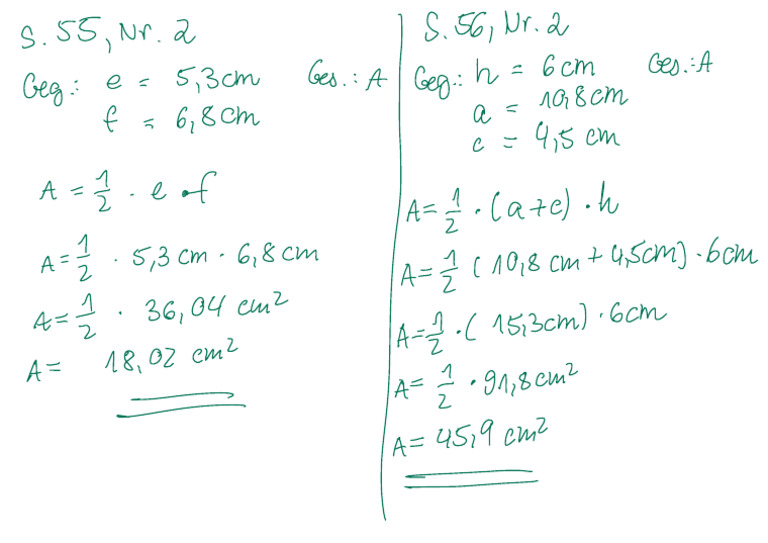 S. 55, Nr. 2
Geg.: e = 5,3cm Ges.: A
f = 6,8cm
A = 1/2 · e · f
A = 1/2 · 5,3 cm · 6,8 cm
A = 1/2 · 36,04 cm²
A = 18,02 cm²
S. 56, Nr. 2
Geg.: h = 6cm Ges.: A
a = 10,8cm
c = 4,5 cm
A = 1/2 · (a+c) · h
A = 1/2 (10,8 cm + 4,5cm) · 6cm
A = 1/2 · (15,3cm) · 6cm
A = 1/2 · 91,8cm²
A = 45,9 cm²